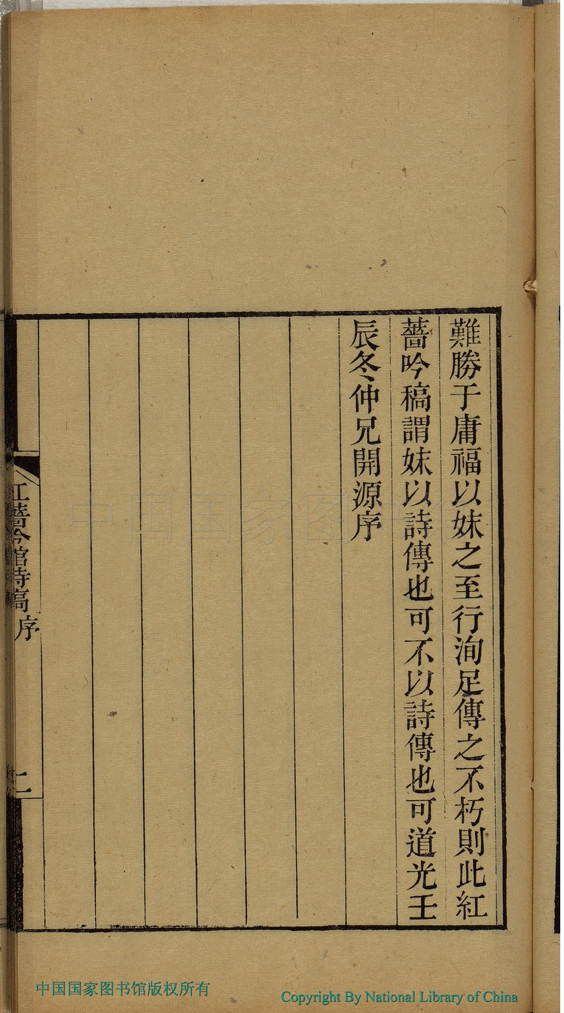 難勝于庸福以妹之至行洵足傳之不朽則此紅
薔吟稿謂妹以詩傳也可不以詩傳也可道光壬
辰冬仲兄開源序
紅薔吟館詩稿序
二
中国国家图书馆版权所有
Copyright By National Library of China